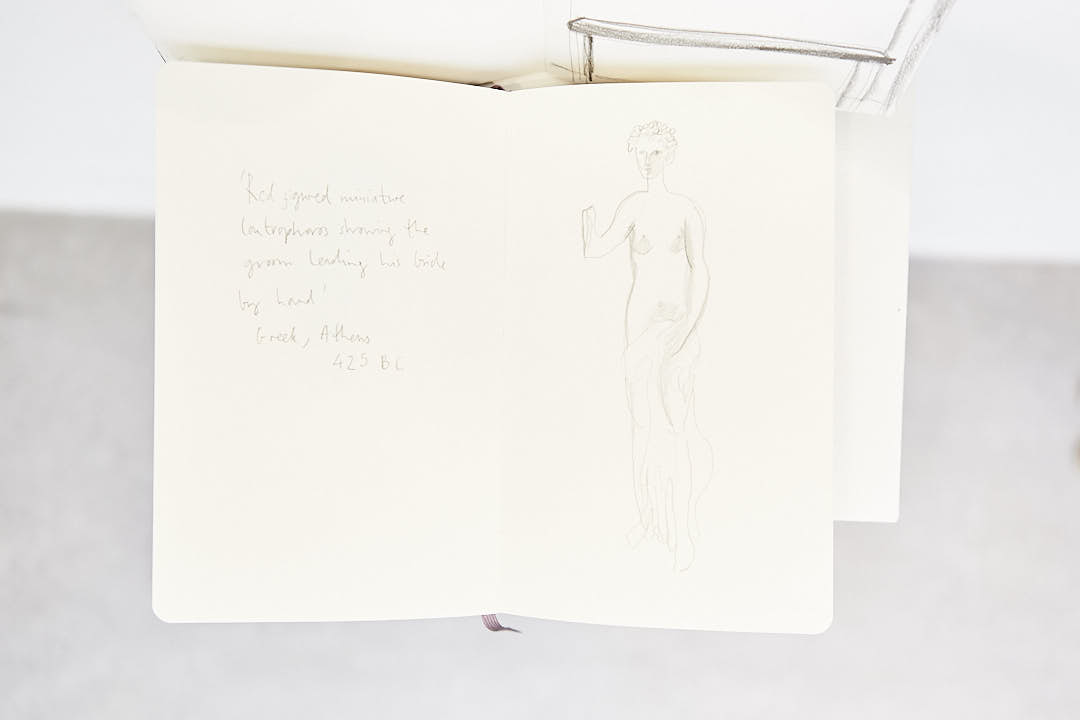 'Red figured miniature
loutrophoros showing the
groom leading his bride
by hand'
Greek, Athens
425 BC